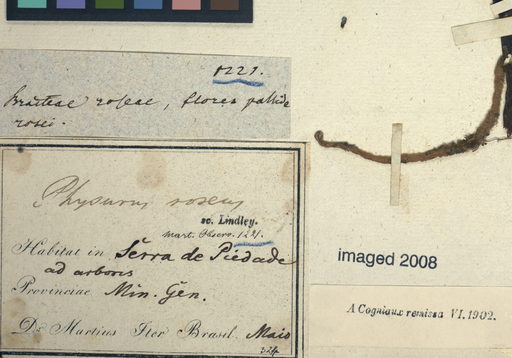 1221.
Bracteae roseae, flores pallide
rosei.
Physurus roseus
sc. Lindley.
Mart. Observ. 1221.
Habitat in Sérra de Piedade
ad arbores
Provinciae Min. Gên.
Dr Martius Iter Brasil. Maio
imaged 2008
A Cogniaux remissa VI. 1902.